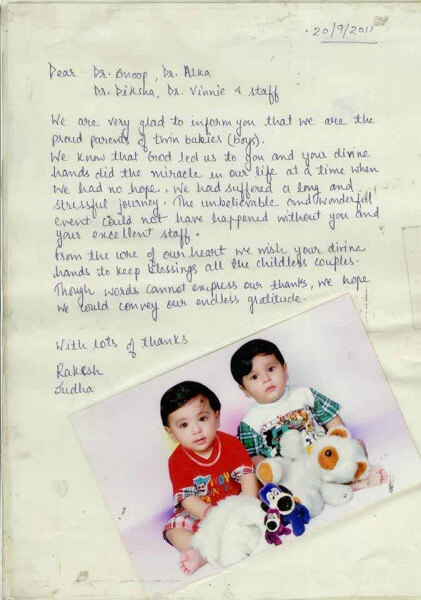 20/9/2011
Dear Dr. Anoop, Dr. Alka
Dr. Diksha, Dr. Vinnie & staff
We are very glad to inform you that we are the
proud parents of twin babies (boys).
We know that God led us to you and your divine
hands did the miracle in our life at a time when
we had no hope. We had suffered a long and
stressful journey. The unbelievable and wonderful
event could not have happened without you and
your excellent staff.
From the core of our heart we wish your divine
hands to keep blessings all the childless couples.
Though words cannot express our thanks, we hope
we could convey our endless gratitude.
With lots of thanks
Rakesh
Sudha